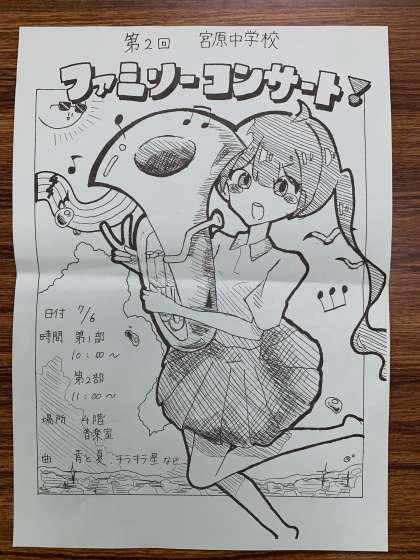 第2回 宮原中学校
ファミリーコンサート!
日付 7/6
時間 第1部
10:00~
第2部
11:00~
場所 4階
音楽室
曲 青と夏、キラキラ星 など